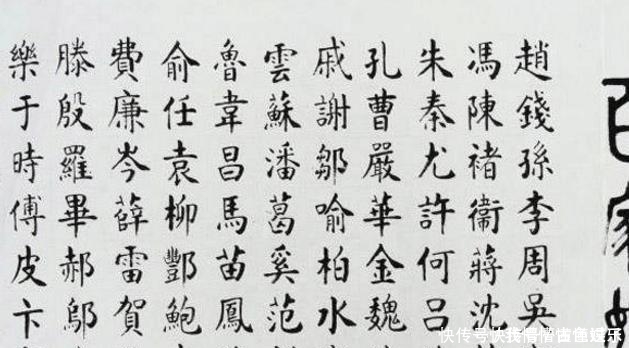 百家
趙錢孫李周吳
馮陳褚衛蔣沈
朱秦尤許何呂
孔曹嚴華金魏
戚謝鄒喻柏水
雲蘇潘葛奚范
魯韋昌馬苗鳳
俞任袁柳酆鮑
費廉岑薛雷賀
滕殷羅畢郝鄔
樂于時傅皮卞
快传号